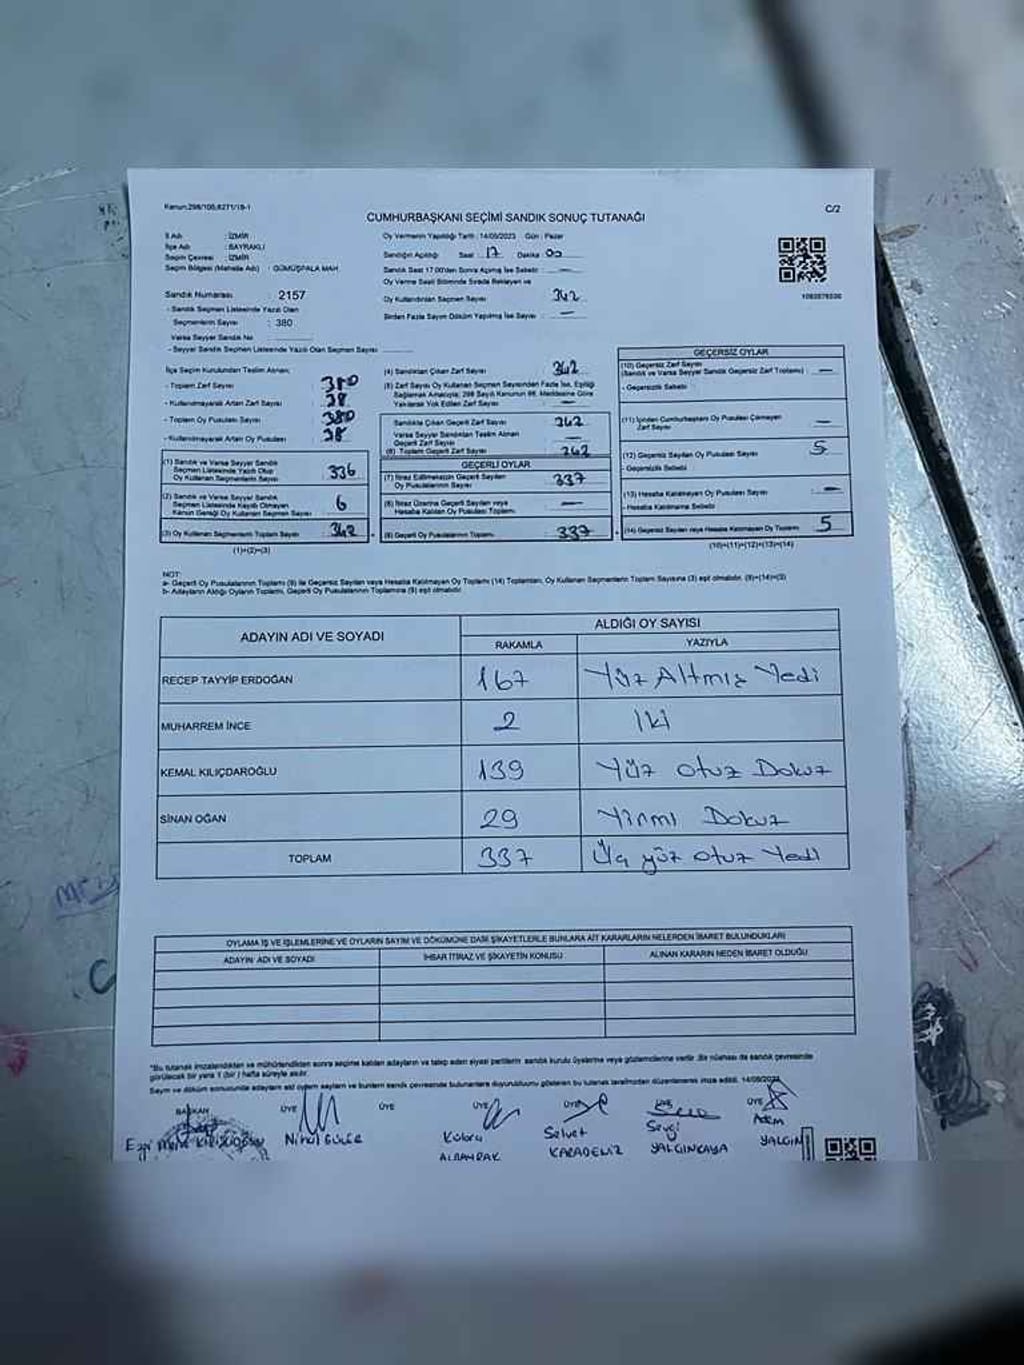 Kanun:298/105,6271/18-1
CUMHURBAŞKANI SEÇİMİ SANDIK SONUÇ TUTANAĞI
C/2
İl Adı : İZMİR
İlçe Adı : BAYRAKLI
Seçim Çevresi : İZMİR
Seçim Bölgesi (Mahalle Adı) : GÜMÜŞPALA MAH.
Oy Vermenin Yapıldığı Tarih : 14/05/2023 Gün : Pazar
Sandığın Açıldığı Saat : 17 Dakika : 00
Sandık Saat 17:00'den Sonra Açılmış İse Sebebi : —
Oy Verme Saati Bitiminde Sırada Bekleyen ve
Oy Kullandırılan Seçmen Sayısı 342
Birden Fazla Sayım Döküm Yapılmış İse Sayısı : —
Sandık Numarası : 2157
- Sandık Seçmen Listesinde Yazılı Olan
Seçmenlerin Sayısı : 380
Varsa Seyyar Sandık No
- Seyyar Sandık Seçmen Listesinde Yazılı Olan Seçmen Sayısı
İlçe Seçim Kurulundan Teslim Alınan;
- Toplam Zarf Sayısı : 380
- Kullanılmayarak Artan Zarf Sayısı : 38
- Toplam Oy Pusulası Sayısı : 380
- Kullanılmayarak Artan Oy Pusulası : 38
(1) Sandık ve Varsa Seyyar Sandık
Seçmen Listesinde Yazılı Olup
Oy Kullanan Seçmenlerin Sayısı 336
(2) Sandık ve Varsa Seyyar Sandık
Seçmen Listesinde Kayıtlı Olmayan
Kanun Gereği Oy Kullanan Seçmen Sayısı 6
(3) Oy Kullanan Seçmenlerin Toplam Sayısı 342
(1)+(2)=(3)
(4) Sandıktan Çıkan Zarf Sayısı : 342
(5) Zarf Sayısı Oy Kullanan Seçmen Sayısından Fazla İse, Eşitliği
Sağlamak Amacıyla; 298 Sayılı Kanunun 98. Maddesine Göre
Yakılarak Yok Edilen Zarf Sayısı : —
Sandıkta Çıkan Geçerli Zarf Sayısı : 342
Varsa Seyyar Sandıktan Teslim Alınan
Geçerli Zarf Sayısı : —
(6) Toplam Geçerli Zarf Sayısı : 342
GEÇERLİ OYLAR
(7) İtiraz Edilmeksizin Geçerli Sayılan
Oy Pusulalarının Sayısı : 337
(8) İtiraz Üzerine Geçerli Sayılan veya
Hesaba Katılan Oy Pusulası Toplamı : —
(9) Geçerli Oy Pusulalarının Toplamı : 337
GEÇERSİZ OYLAR
(10) Geçersiz Zarf Sayısı
(Sandık ve Varsa Seyyar Sandık Geçersiz Zarf Toplamı) : —
- Geçersizlik Sebebi
(11) İçinden Cumhurbaşkanı Oy Pusulası Çıkmayan
Zarf Sayısı : —
(12) Geçersiz Sayılan Oy Pusulası Sayısı : 5
- Geçersizlik Sebebi
(13) Hesaba Katılmayan Oy Pusulası Sayısı : —
- Hesaba Katılmama Sebebi
(14) Geçersiz Sayılan veya Hesaba Katılmayan Oy Toplamı : 5
(10)+(11)+(12)+(13)=(14)
NOT:
a- Geçerli Oy Pusulalarının Toplamı (9) ile Geçersiz Sayılan veya Hesaba Katılmayan Oy Toplamı (14) Toplamları, Oy Kullanan Seçmenlerin Toplam Sayısına (3) eşit olmalıdır. (9)+(14)=(3)
b- Adayların Aldığı Oyların Toplamı, Geçerli Oy Pusulalarının Toplamına (9) eşit olmalıdır.
ADAYIN ADI VE SOYADI
ALDIĞI OY SAYISI
RAKAMLA YAZIYLA
RECEP TAYYİP ERDOĞAN 167 Yüz Altmış Yedi
MUHARREM İNCE 2 İki
KEMAL KILIÇDAROĞLU 139 Yüz otuz Dokuz
SİNAN OĞAN 29 Yirmi Dokuz
TOPLAM 337 Üç yüz otuz Yedi
OYLAMA İŞ VE İŞLEMLERİNE VE OYLARIN SAYIM VE DÖKÜMÜNE DAİR ŞİKAYETLERLE BUNLARA AİT KARARLARIN NELERDEN İBARET BULUNDUKLARI
ADAYIN ADI VE SOYADI İHBAR İTİRAZ VE ŞİKAYETİN KONUSU ALINAN KARARIN NEDEN İBARET OLDUĞU
"Bu tutanak imzalandıktan ve mühürlendikten sonra seçime katılan adayların ve talep eden siyasi partilerin sandık kurulu üyelerine veya gözlemcilerine verilir. Bir nüshası da sandık çevresinde
görülecek bir yere 1 (bir) hafta süreyle asılır.
Sayım ve döküm sonucunda adayların elde ettikleri
BAŞKAN ÜYE ÜYE ÜYE ÜYE ÜYE ÜYE
Nihal GÜLER
Kübra
ALBAYRAK
Selvet
KARADENİZ
Sevgi
YALÇINKAYA
Adem
YALÇIN